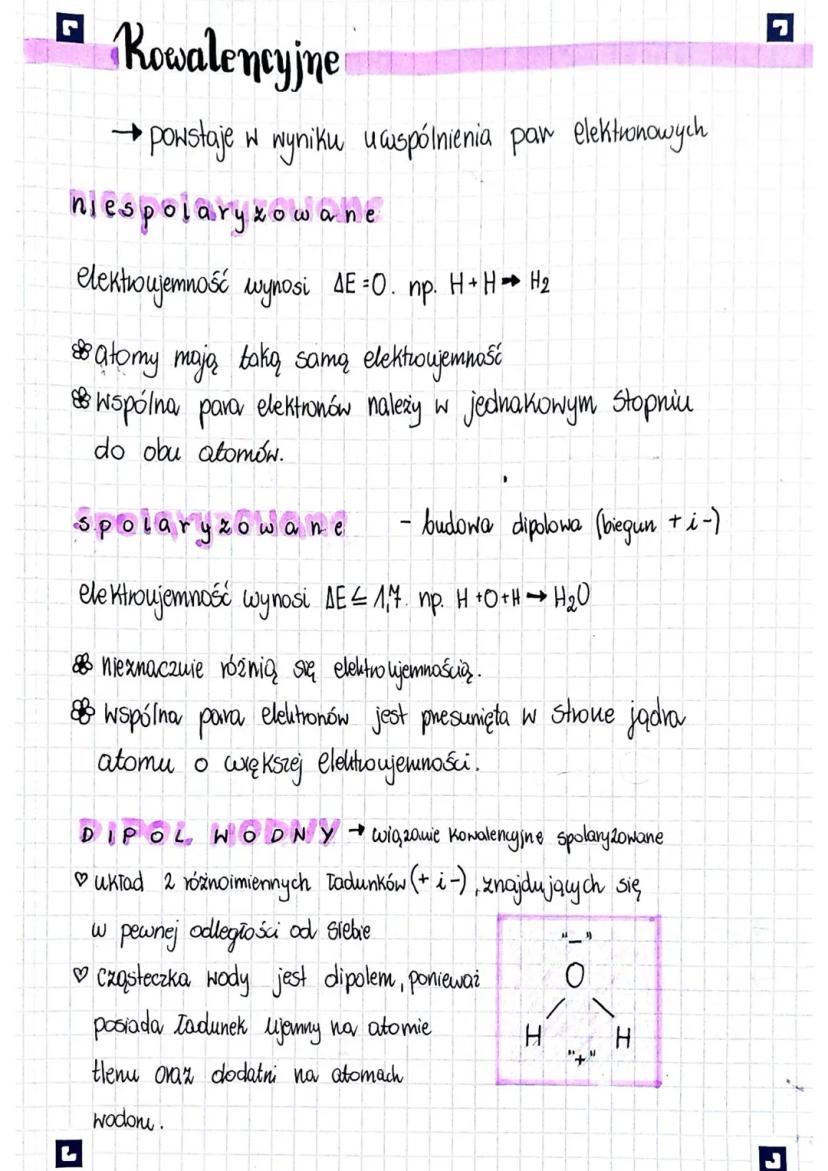 Kowalencyjne
→ powstaje w wyniku uwspólnienia par elektronowych
niespolaryzowane
elektroujemność wynosi ΔE=0. np. H+H→ H₂
atomy mają taką samą elektroujemność
Wspólna para elektronów należy w jednakowym stopniu
do obu atomów.
spolaryzowane - budowa dipolowa (biegun + i -)
elektroujemność wynosi ΔE ≤ 1,7. np. H+O+H → H₂O
nieznacznie różnią się elektroujemnością.
Wspólna para elektronów jest presunięta w strone jądra
atomu o większej elektroujemności.
DIPOL WODNY → wiązanie kowalencyjne spolaryzowane
♡ układ 2 różnoimiennych ładunków (+ i -), znajdujących się
w pewnej odległości od siebie
♡ cząsteczka wody jest dipolem, ponieważ
posiada ładunek ujemny na atomie
tlenu oraz dodatni na atomach
wodoru.
"-"
O
H H
"+"